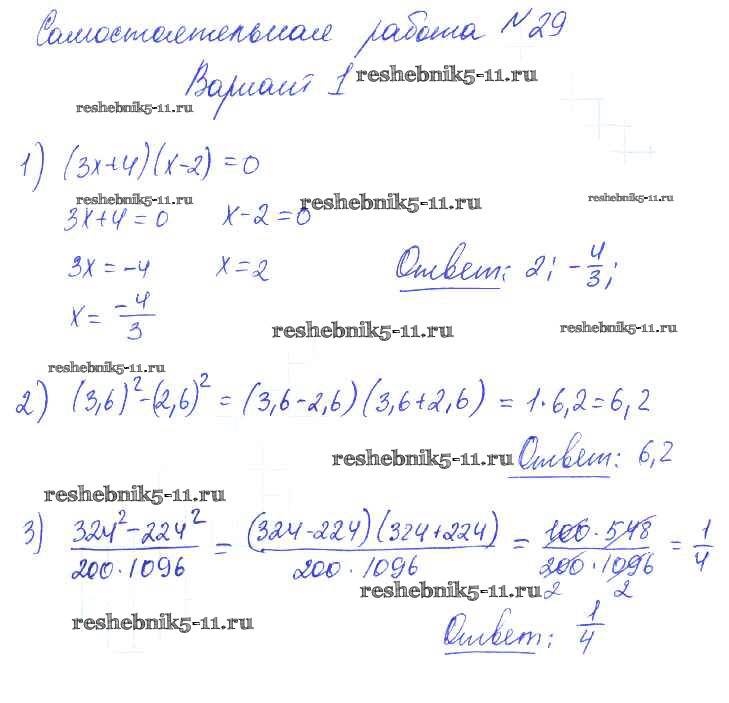 Самостоятельная работа №29
Вариант 1 reshebnik5-11.ru
reshebnik5-11.ru
1) (3x+4)(x-2)=0
reshebnik5-11.ru reshebnik5-11.ru reshebnik5-11.ru
3x+4=0 x-2=0
3x=-4 x=2 Ответ: 2; -4/3;
x= -4/3
reshebnik5-11.ru reshebnik5-11.ru
reshebnik5-11.ru
2) (3,6)²-(2,6)²=(3,6-2,6)(3,6+2,6)=1·6,2=6,2
reshebnik5-11.ru Ответ: 6,2
reshebnik5-11.ru
3) (324²-224²)/(200·1096) = (324-224)(324+224)/(200·1096) = (100·548)/(200·1096) = 1/4
reshebnik5-11.ru 2 2
reshebnik5-11.ru
Ответ: 1/4